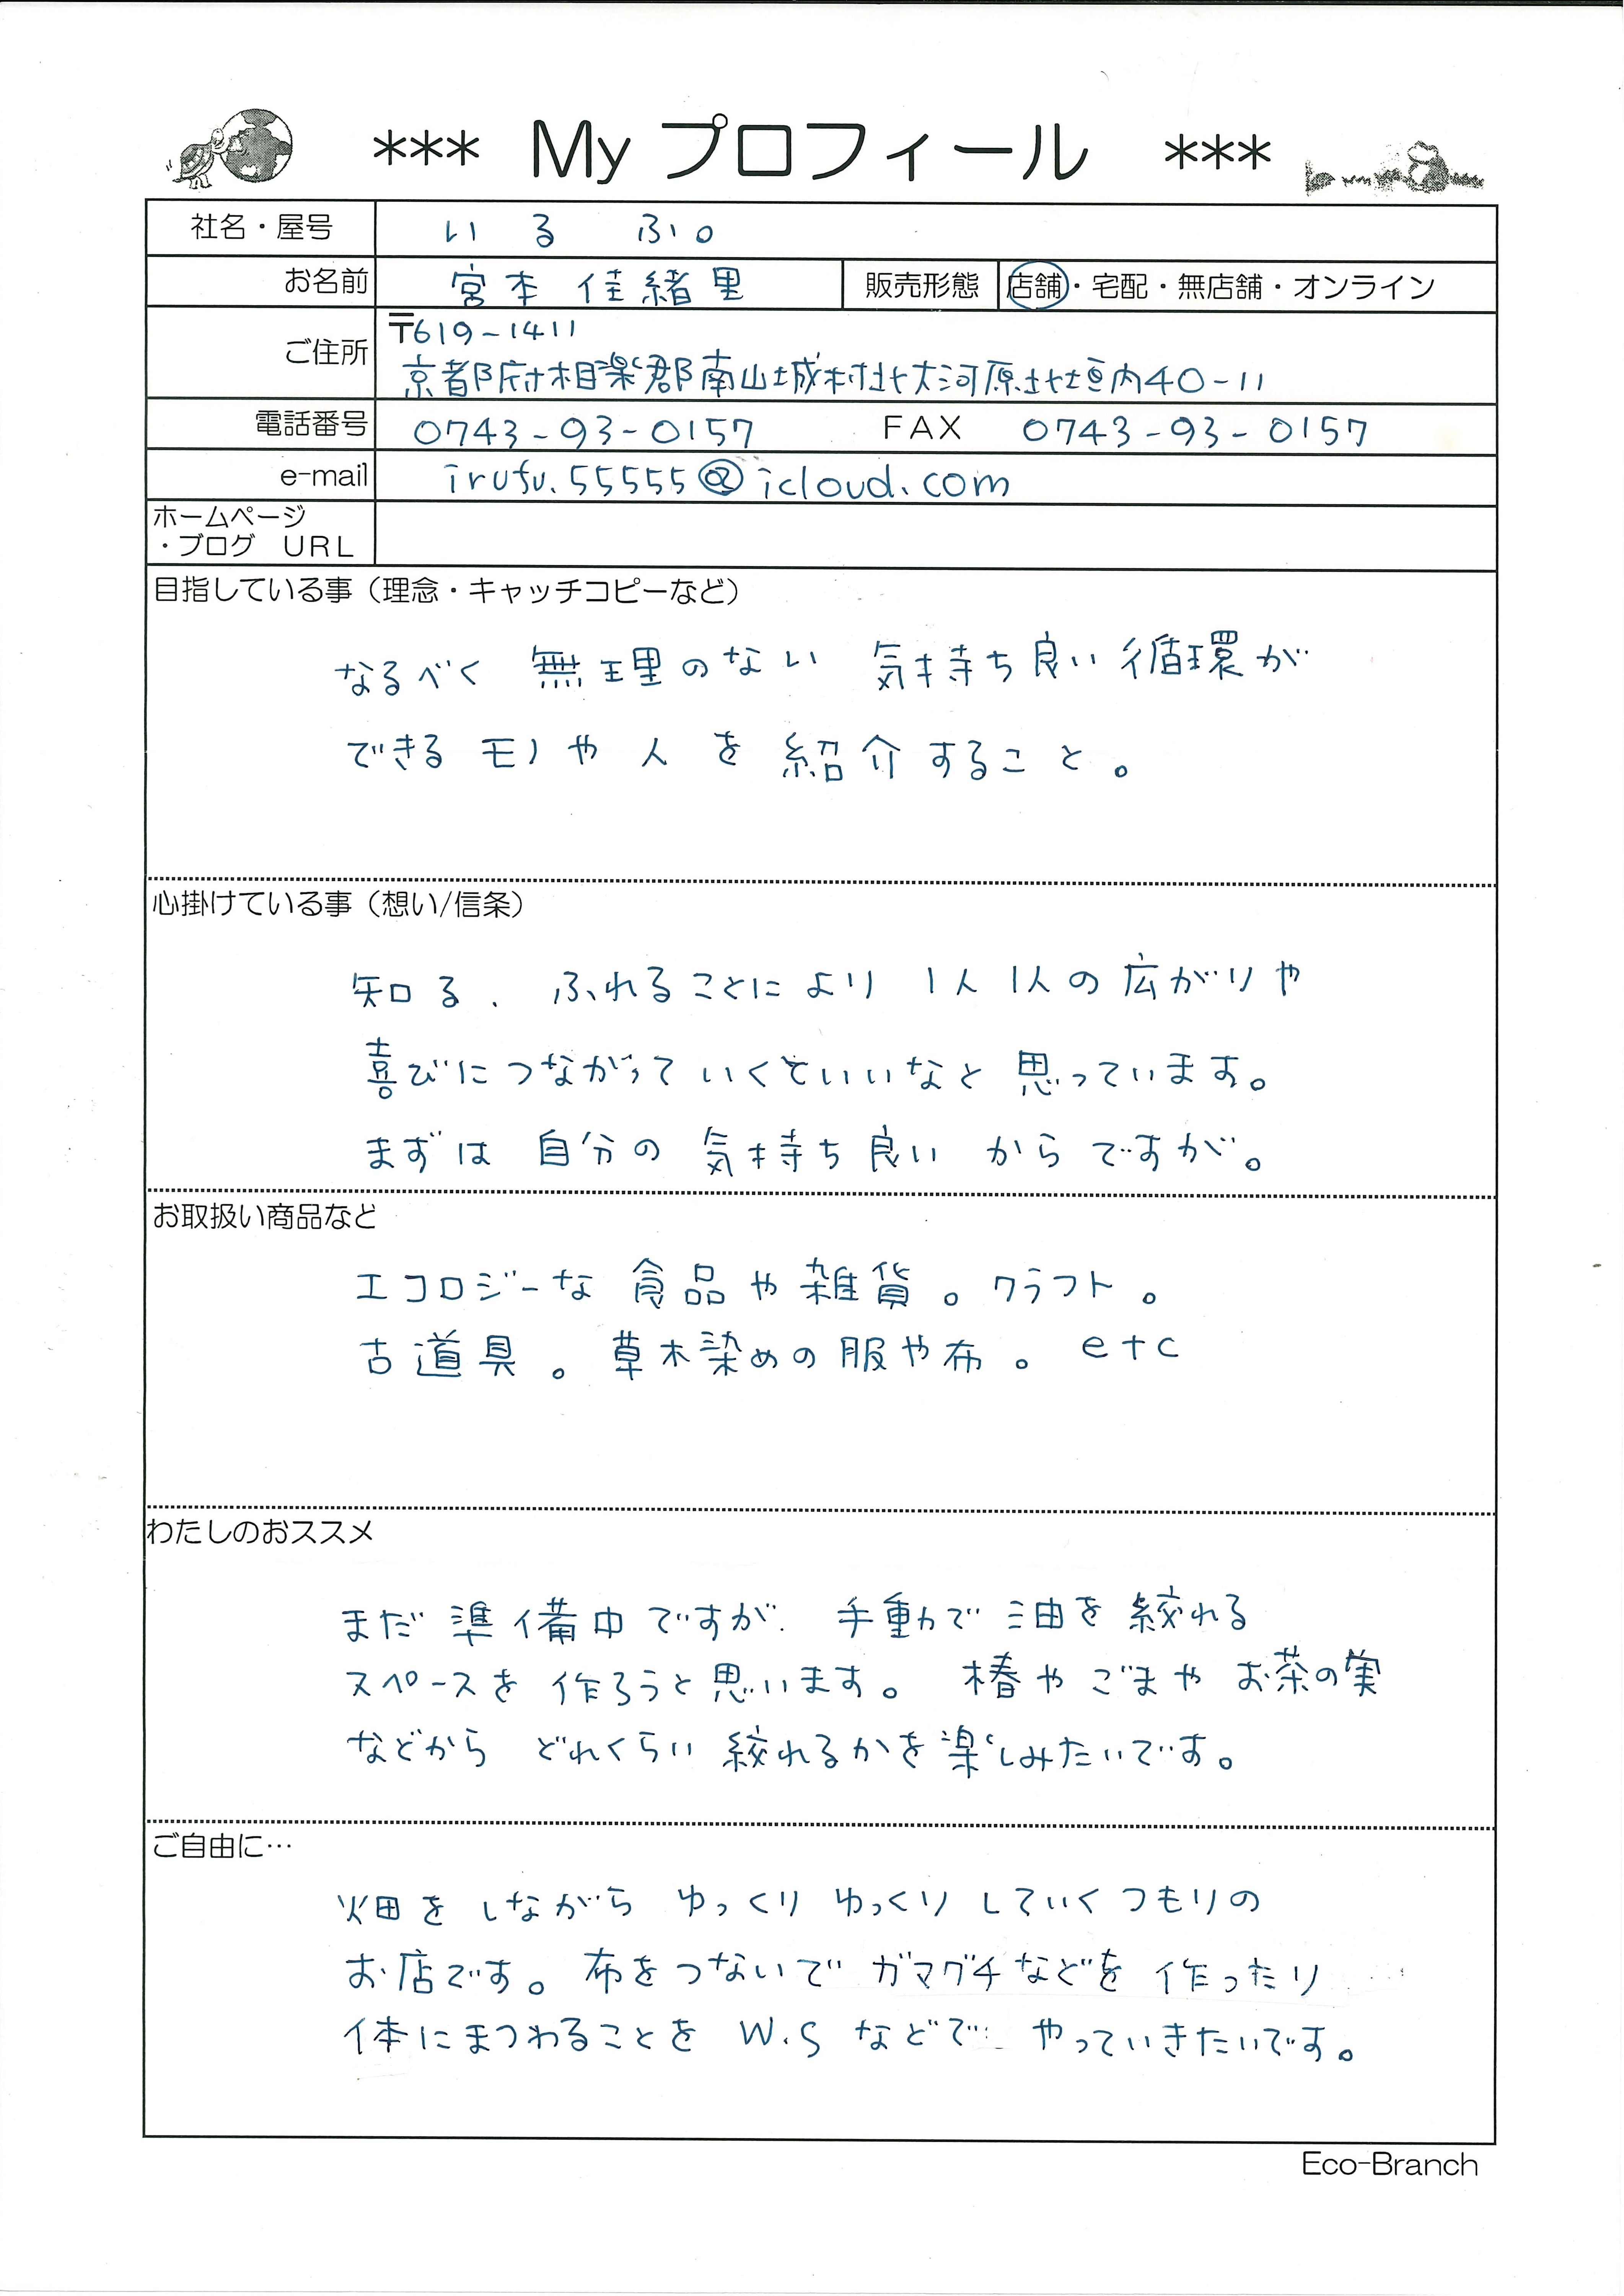 *** My プロフィール ***
社名・屋号 いる ふ。
お名前 宮本 佳緒里 販売形態 店舗・宅配・無店舗・オンライン
ご住所 〒619-1411
京都府相楽郡南山城村北大河原北垣内40-11
電話番号 0743-93-0157 FAX 0743-93-0157
e-mail irufu.55555@icloud.com
ホームページ
・ブログ URL
目指している事（理念・キャッチコピーなど）
なるべく 無理のない 気持ち良い循環が
できる モノや 人 を 紹介すること。
心掛けている事（想い/信条）
知る、ふれることにより 1人1人の広がりや
喜びにつながって いくといいなと 思っています。
まずは 自分の 気持ち良い からですが。
お取扱い商品など
エコロジーな 食品や雑貨。クラフト。
古道具。草木染めの服や布。etc
わたしのおススメ
まだ 準備中ですが、手動で油を絞れる
スペースを作ろうと思います。椿や ごまや お茶の実
などから どれくらい絞れるかを楽しみたいです。
ご自由に…
畑をしながら ゆっくり ゆっくり していくつもりの
お店です。布をつないで ガマグチなどを 作ったり
体にまつわることを W.S などで やっていきたいです。
Eco-Branch